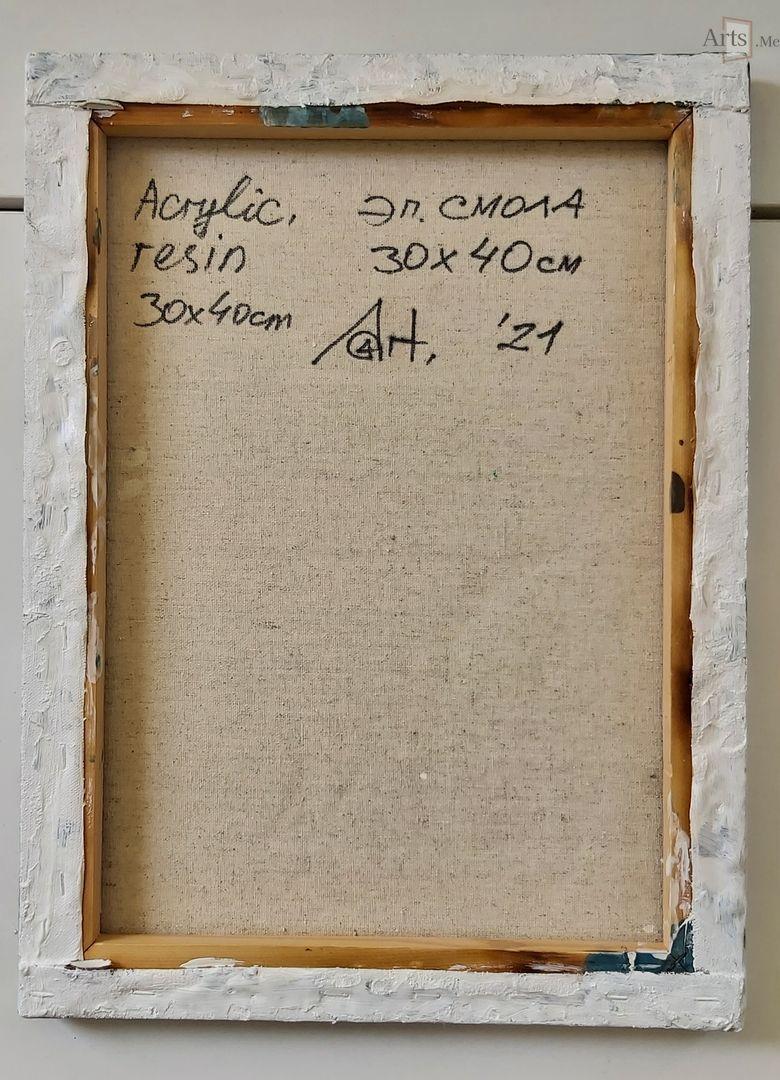 Arts.Me
Acrylic, эп. смола
resin 30х40см
30x40cm
'21